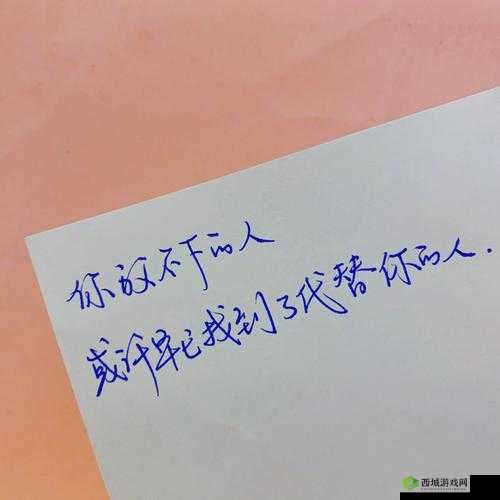 你放不下的人
或许早已找到了代替你的人.
西城游戏网